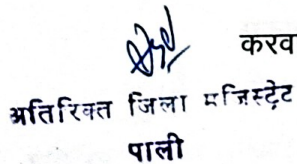 करव
अतिरिक्त जिला मजिस्ट्रेट
पाली